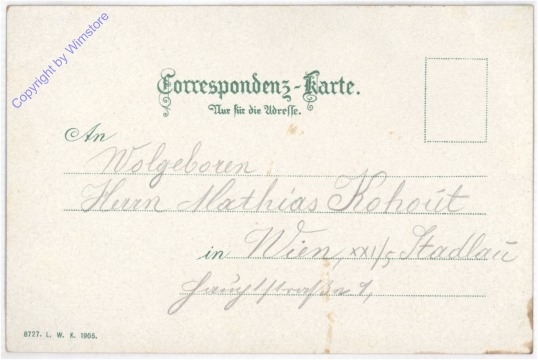 Copyright by Wimstore
Correspondenz-Karte.
Nur für die Adresse.
An
Wolgeboren
Herrn Mathias Kohout
in Wien, XXI/5 Stadlau
Hauptstraße 1,
8727. L. W. K. 1905.